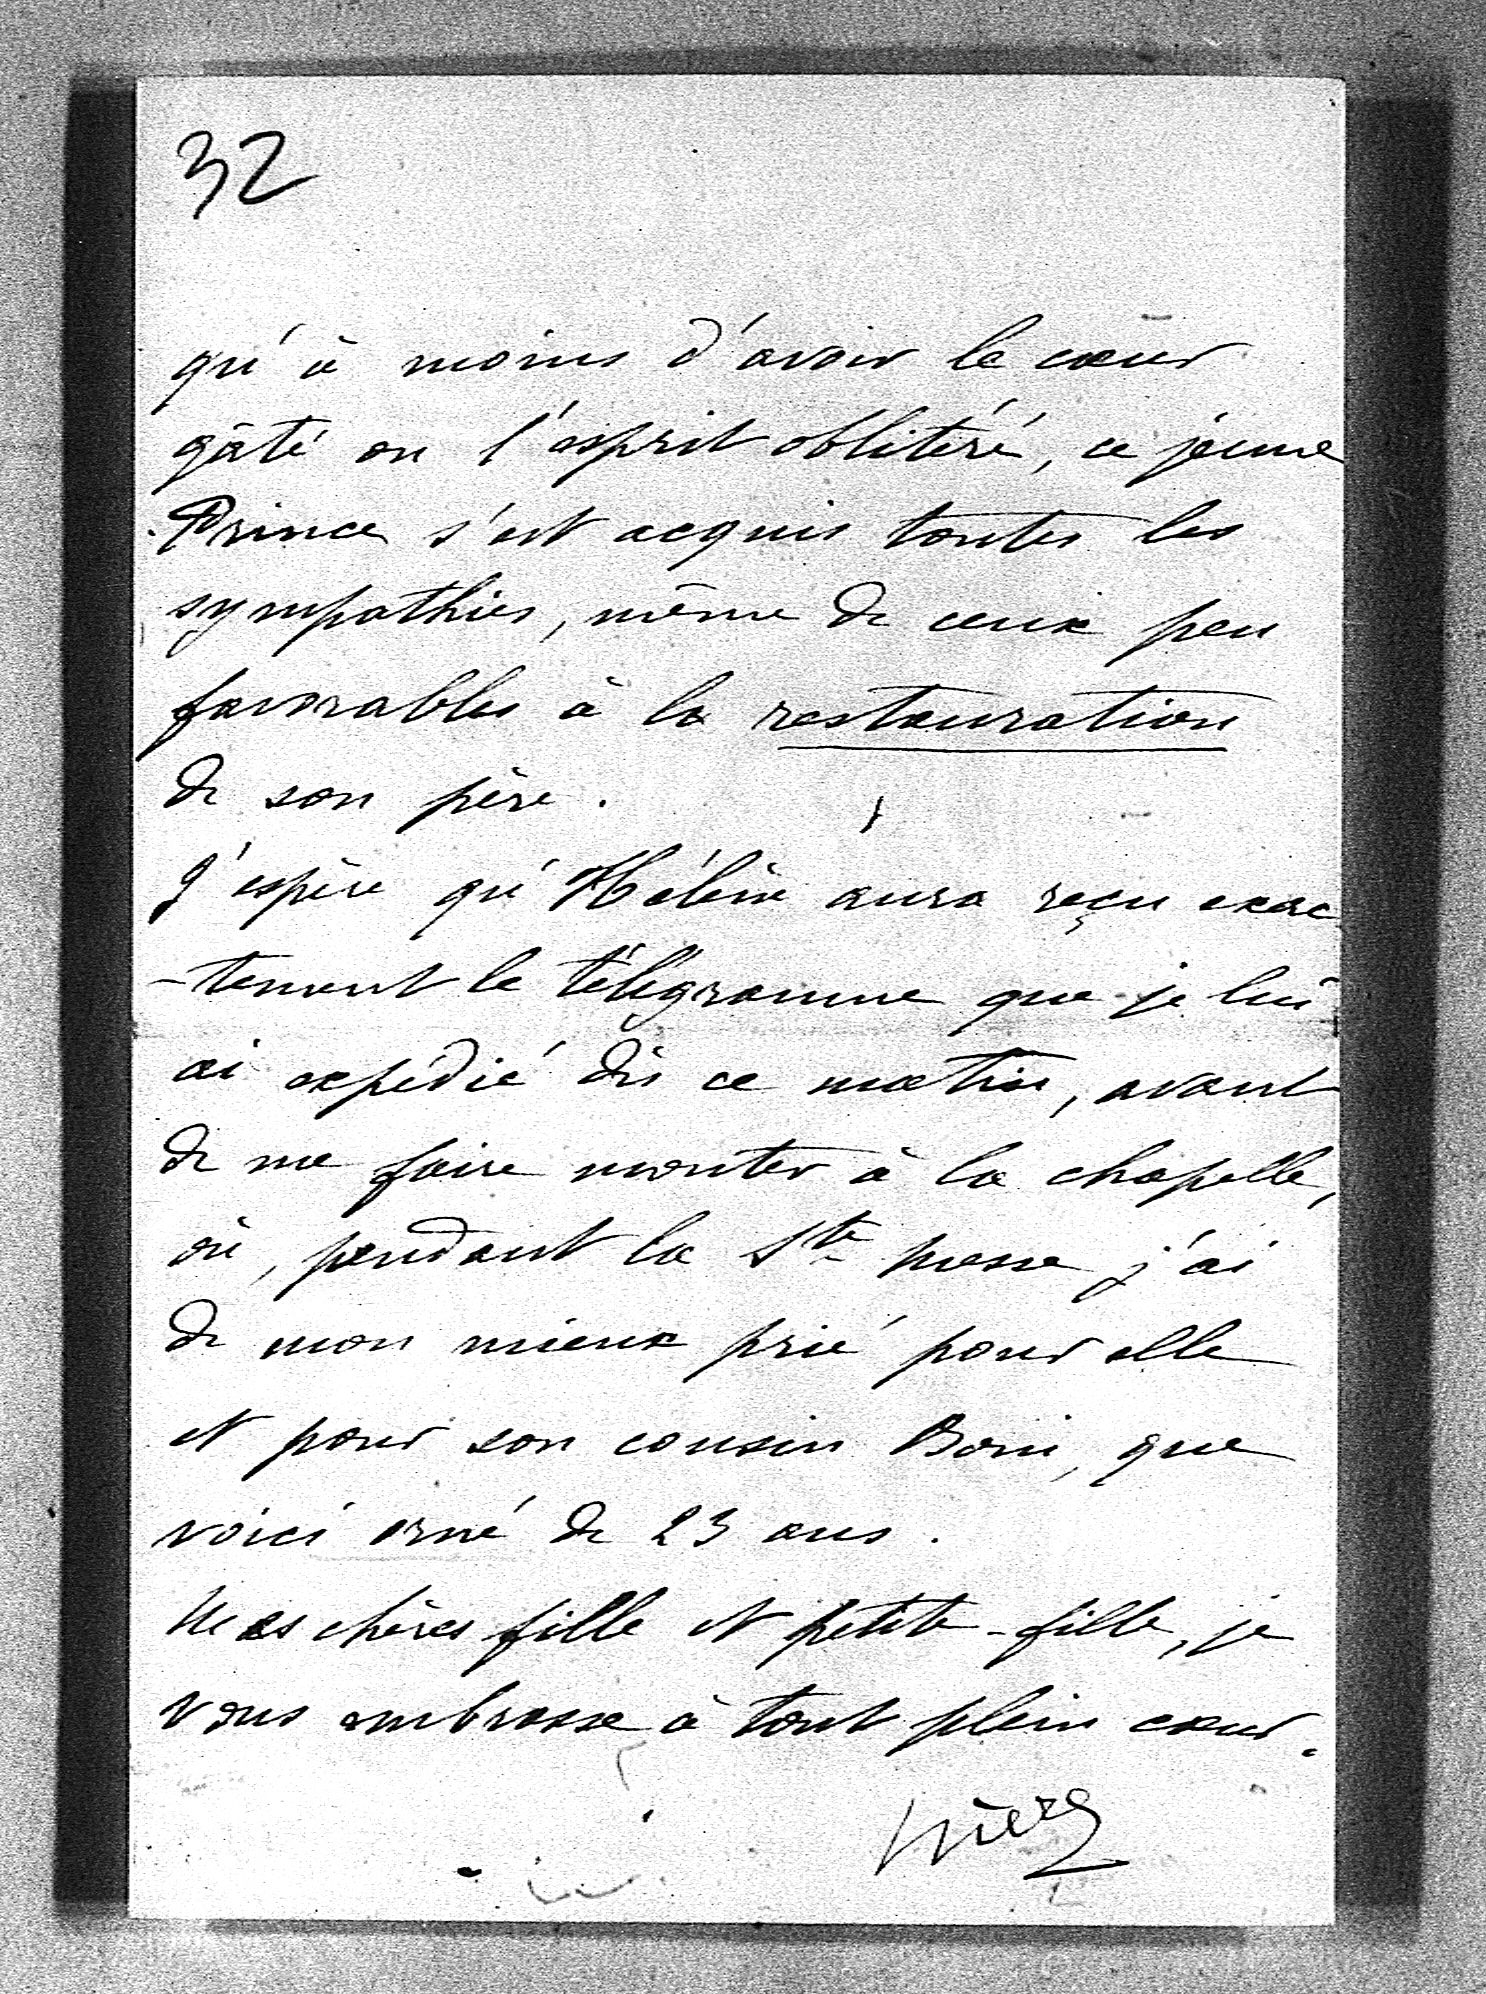 32
qu'à moins d'avoir le cœur
gâté ou l'esprit oblitéré, ce jeune
Prince s'est acquis toutes les
sympathies, même de ceux peu
favorables à la restauration
de son père.
J'espère qu'Hélène aura reçu exac
-tement le télégramme que je lui
ai expédié dès ce matin, avant
de me faire monter à la chapelle,
où, pendant la Ste messe j'ai
de mon mieux prié pour elle
et pour son cousin Boni, que
voici orné de 23 ans.
Mes chères fille et petite-fille, je
vous embrasse à tout plein cœur.